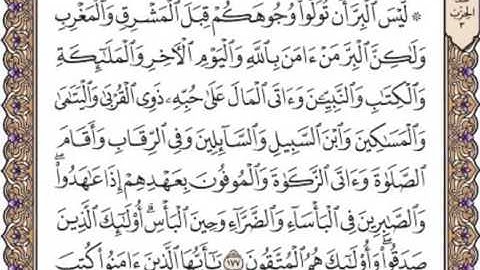 ۞ لَّيۡسَ ٱلۡبِرَّ أَن تُوَلُّواْ وُجُوهَكُمۡ قِبَلَ ٱلۡمَشۡرِقِ وَٱلۡمَغۡرِبِ
وَلَٰكِنَّ ٱلۡبِرَّ مَنۡ ءَامَنَ بِٱللَّهِ وَٱلۡيَوۡمِ ٱلۡأٓخِرِ وَٱلۡمَلَٰٓئِكَةِ
وَٱلۡكِتَٰبِ وَٱلنَّبِيِّـۧنَ وَءَاتَى ٱلۡمَالَ عَلَىٰ حُبِّهِۦ ذَوِي ٱلۡقُرۡبَىٰ وَٱلۡيَتَٰمَىٰ
وَٱلۡمَسَٰكِينَ وَٱبۡنَ ٱلسَّبِيلِ وَٱلسَّآئِلِينَ وَفِي ٱلرِّقَابِ وَأَقَامَ
ٱلصَّلَوٰةَ وَءَاتَى ٱلزَّكَوٰةَ وَٱلۡمُوفُونَ بِعَهۡدِهِمۡ إِذَا عَٰهَدُواْۖ
وَٱلصَّٰبِرِينَ فِي ٱلۡبَأۡسَآءِ وَٱلضَّرَّآءِ وَحِينَ ٱلۡبَأۡسِۗ أُوْلَٰٓئِكَ ٱلَّذِينَ
صَدَقُواْۖ وَأُوْلَٰٓئِكَ هُمُ ٱلۡمُتَّقُونَ ١٧٧ يَٰٓأَيُّهَا ٱلَّذِينَ ءَامَنُواْ كُتِبَ
الحزب
٣